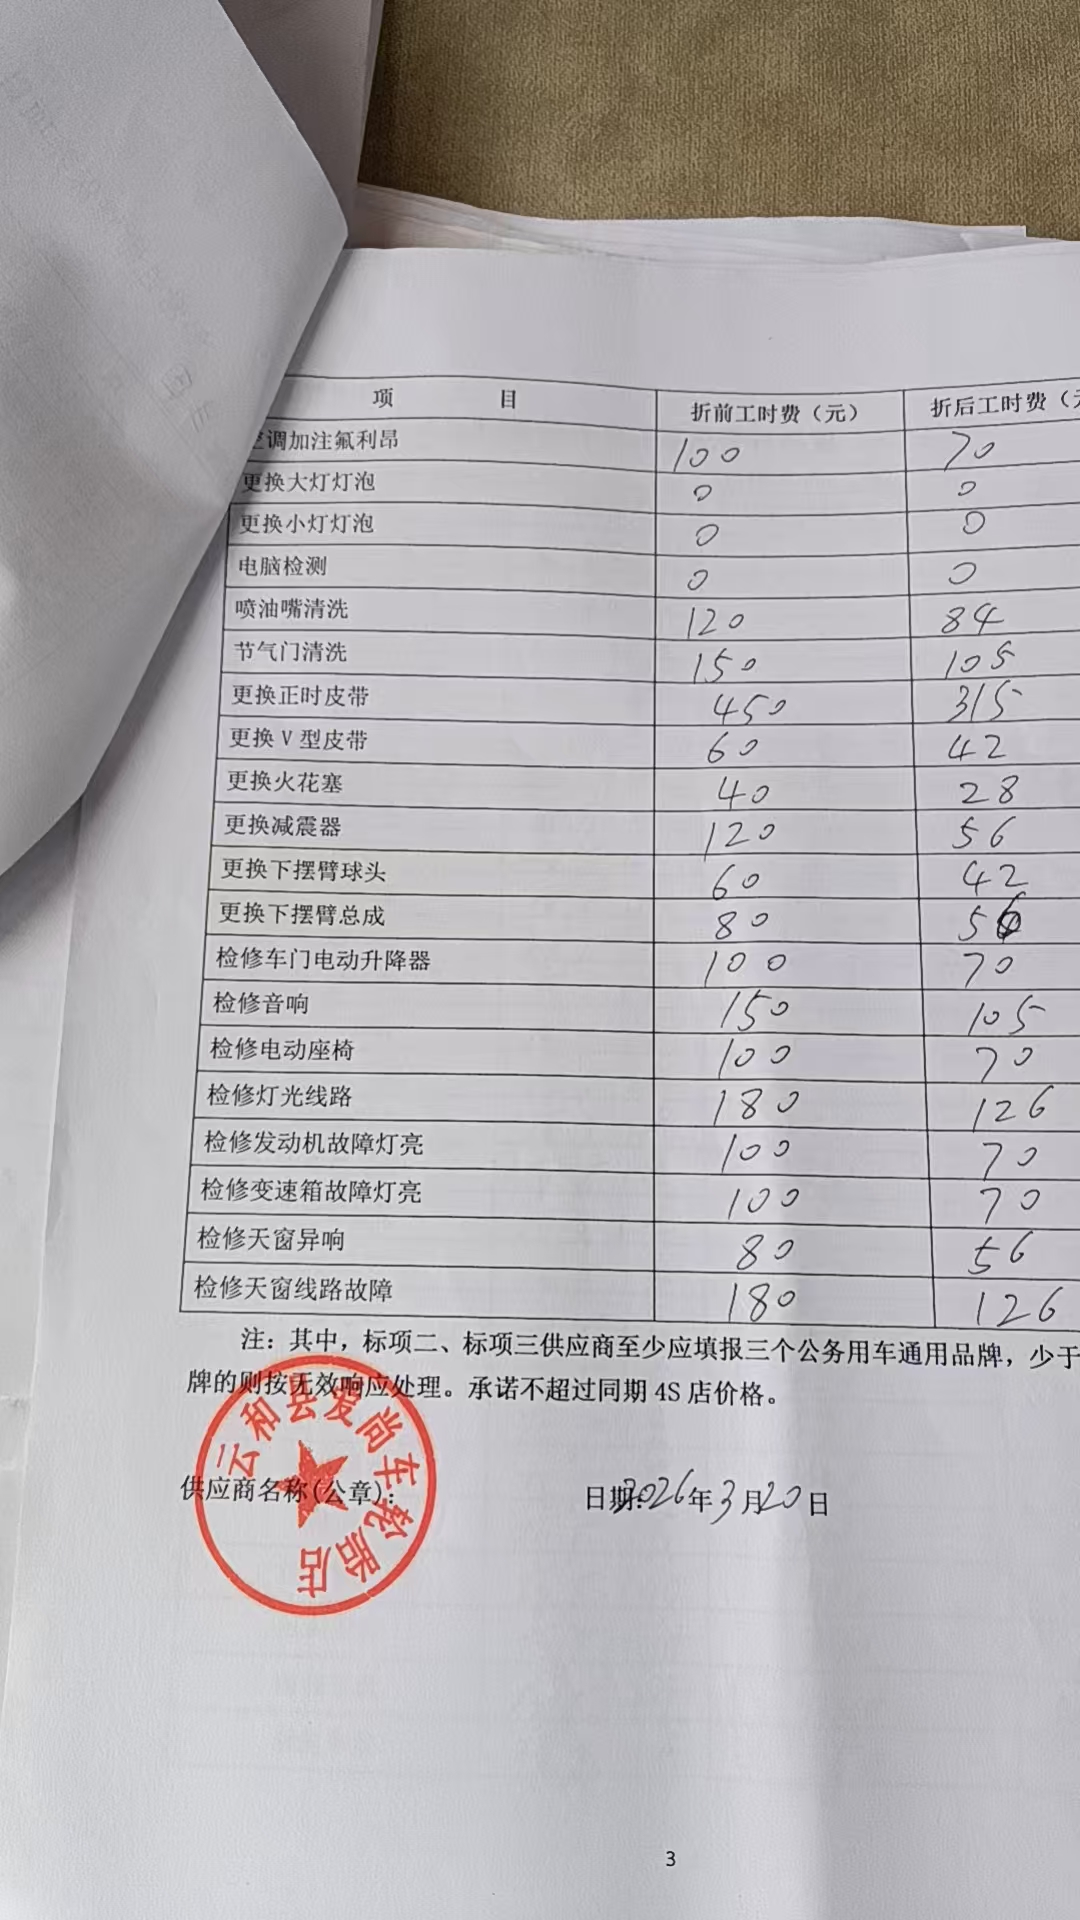 项 目 折前工时费（元） 折后工时费（元
空调加注氟利昂 100 70
更换大灯灯泡 0 0
更换小灯灯泡 0 0
电脑检测 0 0
喷油嘴清洗 120 84
节气门清洗 150 105
更换正时皮带 450 315
更换 V 型皮带 60 42
更换火花塞 40 28
更换减震器 120 56
更换下摆臂球头 60 42
更换下摆臂总成 80 56
检修车门电动升降器 100 70
检修音响 150 105
检修电动座椅 100 70
检修灯光线路 180 126
检修发动机故障灯亮 100 70
检修变速箱故障灯亮 100 70
检修天窗异响 80 56
检修天窗线路故障 180 126
注：其中，标项二、标项三供应商至少应填报三个公务用车通用品牌，少于
牌的则按无效响应处理。承诺不超过同期 4S 店价格。
云和县爱尚车轮胎店
供应商名称(公章)： 日期：2026年3月20日
3